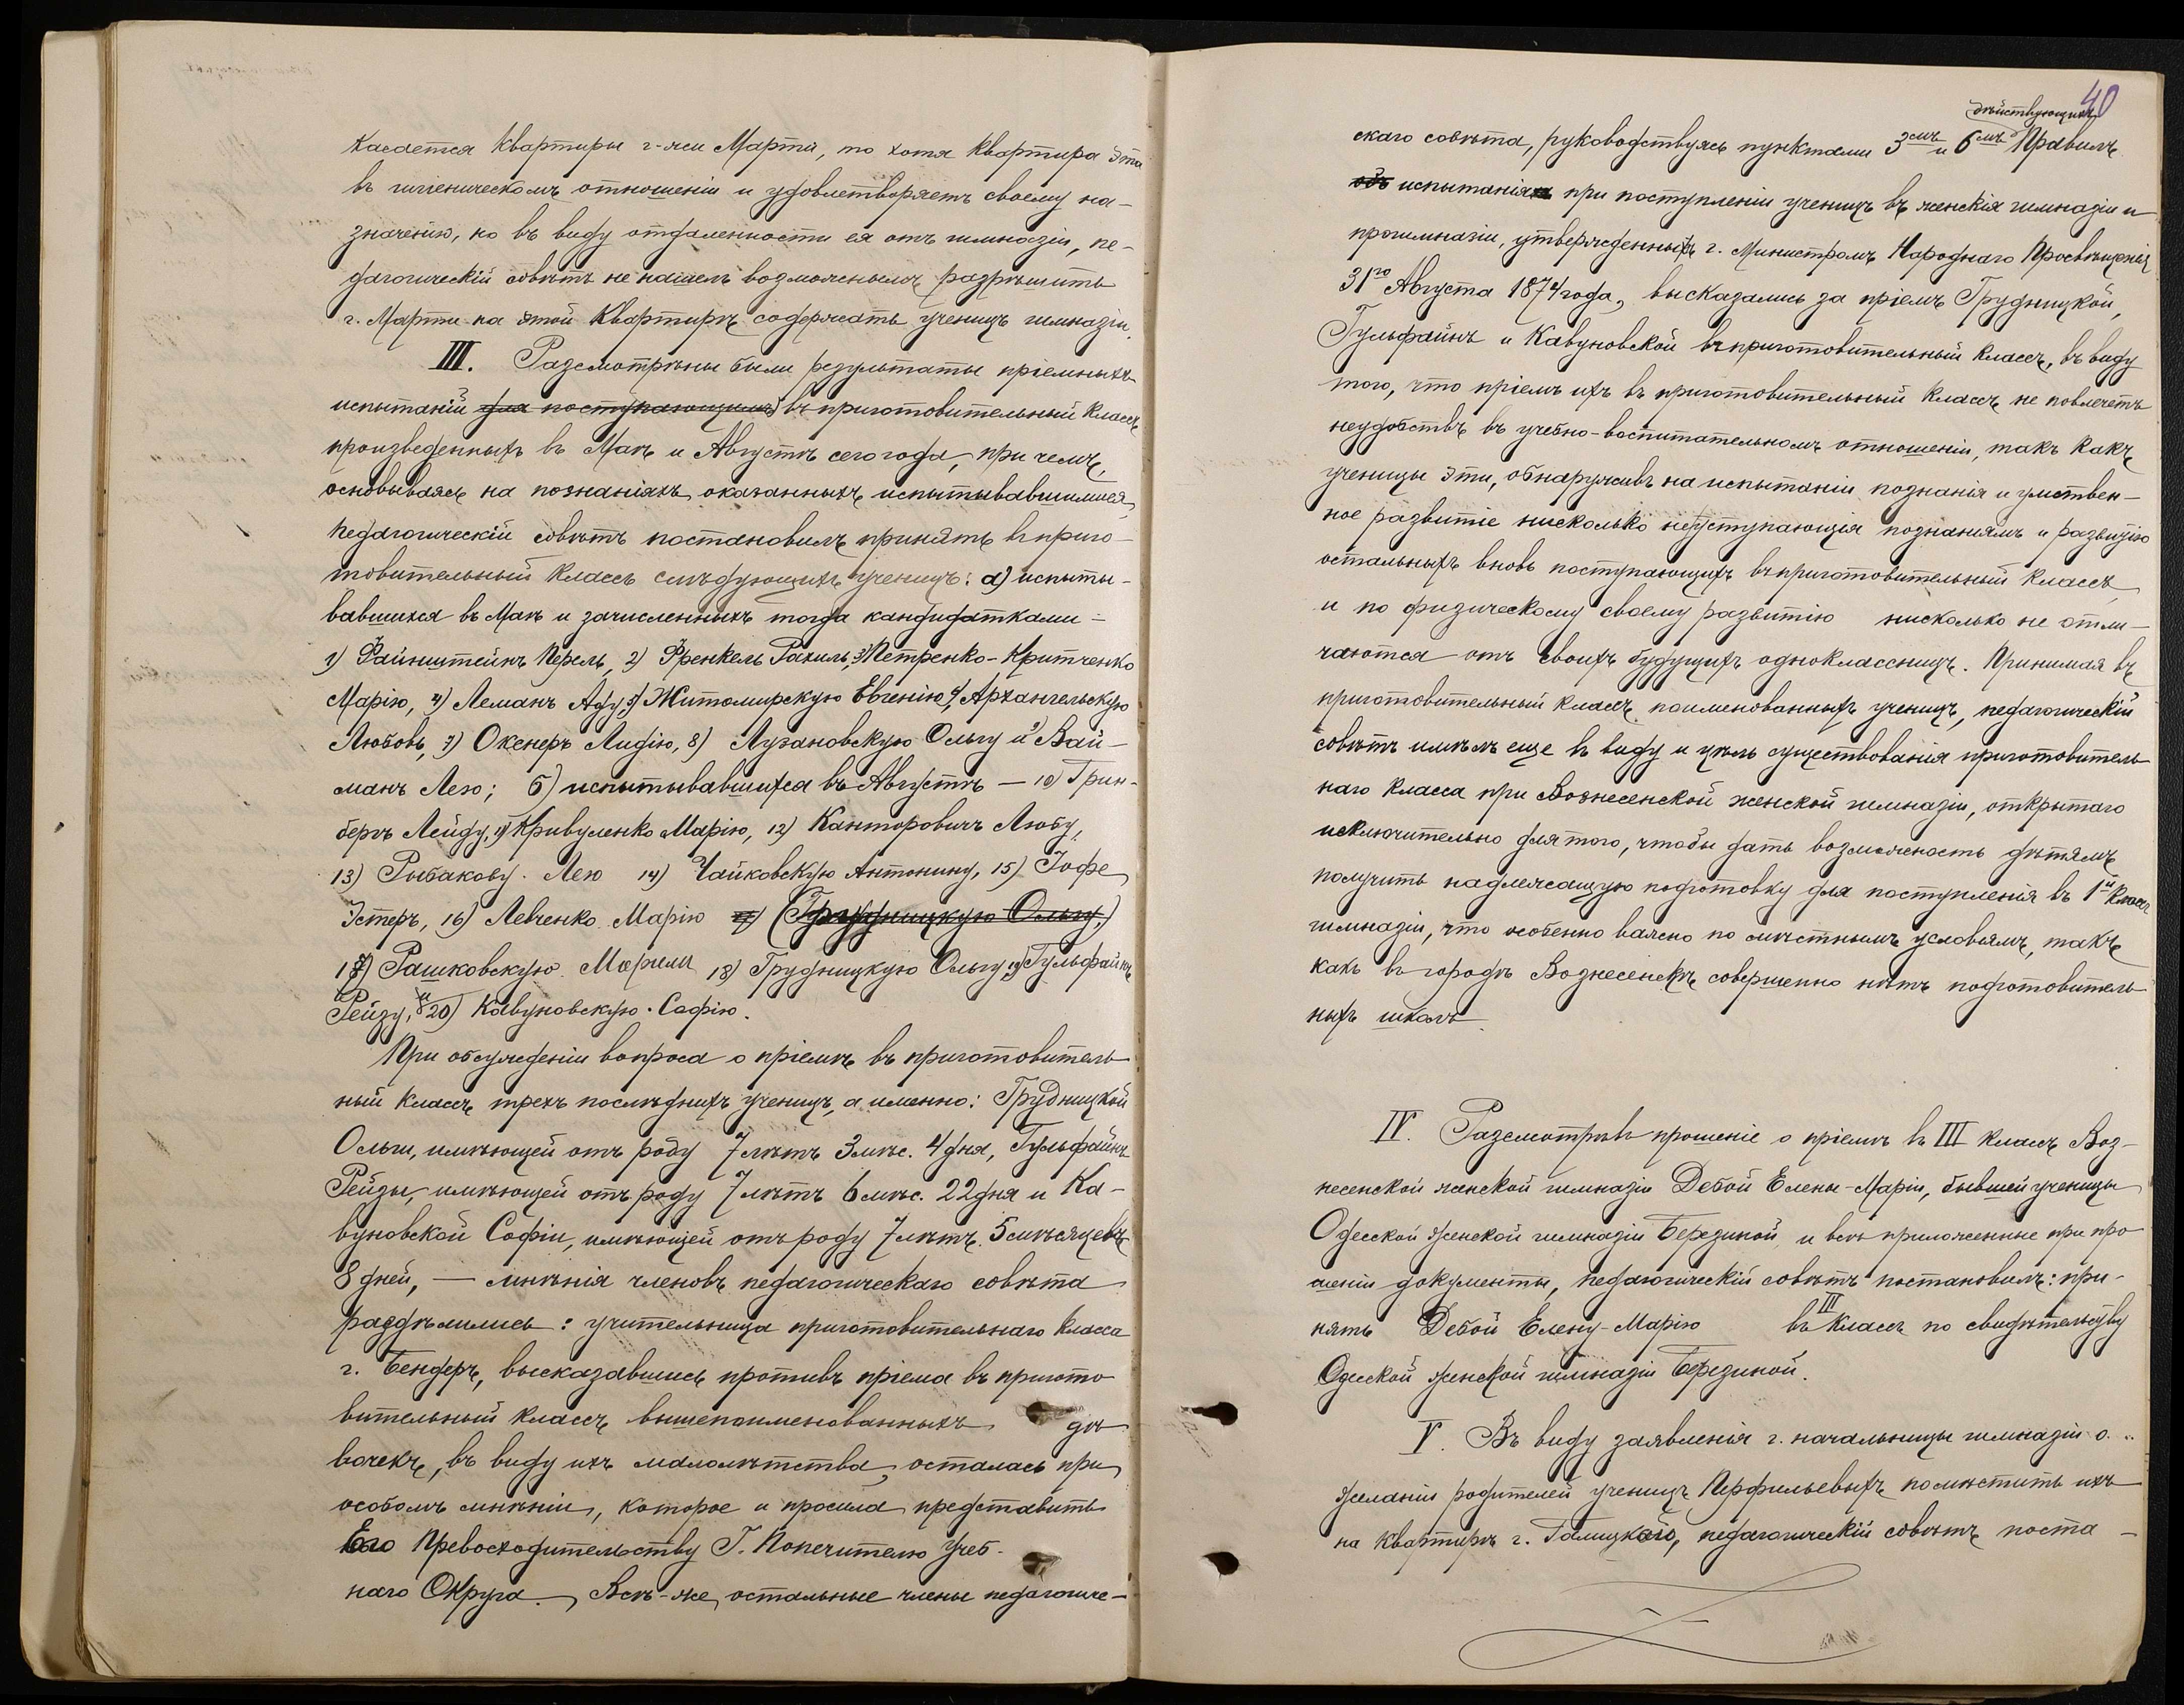 касается квартиры г-жи Марти, то хотя квартира эта
въ гигіеническомъ отношеніи и удовлетворяетъ своему на-
значенію, но въ виду отдаленности ея отъ гимназіи, пе-
дагогическій совѣтъ не нашелъ возможнымъ разрѣшить
г. Марти на этой квартирѣ содержать ученицъ гимназіи.
III. Разсмотрѣны были результаты пріемныхъ
испытаній для поступающихъ въ приготовительный классъ,
произведенныхъ въ Маѣ и Августѣ сего года, при чемъ,
основываясь на познаніяхъ, оказанныхъ испытывавшимися,
педагогическій совѣтъ постановилъ принять въ приго-
товительный классъ слѣдующихъ ученицъ: а) испыты-
вавшихся въ Маѣ и зачисленныхъ тогда кандидатками -
1) Файнштейнъ Перель, 2) Френкель Рахиль, 3) Петренко-Критченко
Марію, 4) Леманъ Аду, 5) Житомирскую Евгенію, 6) Архангельскую
Любовь, 7) Окснеръ Лидію, 8) Лузановскую Ольгу и 9) Вай-
манъ Лею; б) испытывавшихся въ Августѣ — 10) Грин-
бергъ Лейду, 11) Кривуленко Марію, 12) Канторовичъ Любу,
13) Рыбакову Лею 14) Чайковскую Антонину, 15) Іофе
Эстеръ, 16) Левченко Марію 17) (Грудницкую Ольгу)
17) Рашковскую Марьем 18) Грудницкую Ольгу, 19) Гульфайнъ
Рейзу, и 20) Кавуновскую Софію.
При обсужденіи вопроса о пріемѣ въ приготовитель-
ный классъ трехъ послѣднихъ ученицъ, а именно: Грудницкой
Ольги, имѣющей отъ роду 7 лѣтъ 3 мѣс. 4 дня, Гульфайнъ
Рейзы, имѣющей отъ роду 7 лѣтъ 6 мѣс. 22 дня и Ка-
вуновской Софіи, имѣющей отъ роду 7 лѣтъ 5 мѣсяцевъ
8 дней, — мнѣнія членовъ педагогическаго совѣта
раздѣлились: учительница приготовительнаго класса
г. Бендеръ, высказавшись противъ пріема въ пригото
вительный классъ вышепоименованныхъ дѣ
вочекъ, въ виду ихъ малолѣтства, осталась при
особомъ мнѣніи, которое и просила представить
Его Превосходительству Г. Попечителю Учеб-
наго Округа. Всѣ-же остальные члены педагогиче-
40
дѣйствующихъ
скаго совѣта, руководствуясь пунктами 3емъ и 6мъ Правилъ
объ испытаніяхъ при поступленіи ученицъ въ женскія гимназіи и
прогимназіи, утвержденныхъ г. Министромъ Народнаго Просвѣщенія
31го Августа 1874 года, высказались за пріемъ Грудницкой,
Гульфайнъ и Кавуновской въ приготовительный классъ, въ виду
того, что пріемъ ихъ въ приготовительный классъ не повлечетъ
неудобствъ въ учебно-воспитательномъ отношеніи, такъ какъ
ученицы эти, обнаруживъ на испытаніи познанія и умствен-
ное развитіе нисколько неуступающія познаніямъ и развитію
остальныхъ вновь поступающихъ въ приготовительный классъ,
и по физическому своему развитію нисколько не отли-
чаются отъ своихъ будущихъ одноклассницъ. Принимая въ
приготовительный классъ поименованныхъ ученицъ, педагогическій
совѣтъ имѣлъ еще въ виду и цѣль существованія приготовитель
наго класса при Вознесенской женской гимназіи, открытаго
исключительно для того, чтобы дать возможность дѣтямъ
получить надлежащую подготовку для поступленія въ 1й классъ
гимназіи, что особенно важно по мѣстнымъ условіямъ, такъ
какъ въ городѣ Вознесенскѣ совершенно нѣтъ подготовитель
ныхъ школъ.
IV. Разсмотрѣвъ прошеніе о пріемѣ въ III классъ Воз-
несенской женской гимназіи Дебой Елены-Маріи, бывшей ученицы
Одесской женской гимназіи Березиной и всѣ приложенные при про
шеніи документы, педагогическій совѣтъ постановилъ: при-
нять Дебой Елену-Марію въ III классъ по свидѣтельству
Одесской женской гимназіи Березиной.
V. Въ виду заявленія г. начальницы гимназіи о
желаніи родителей ученицъ Перфильевыхъ помѣстить ихъ
на квартирѣ г. Галицкаго, педагогическій совѣтъ поста-